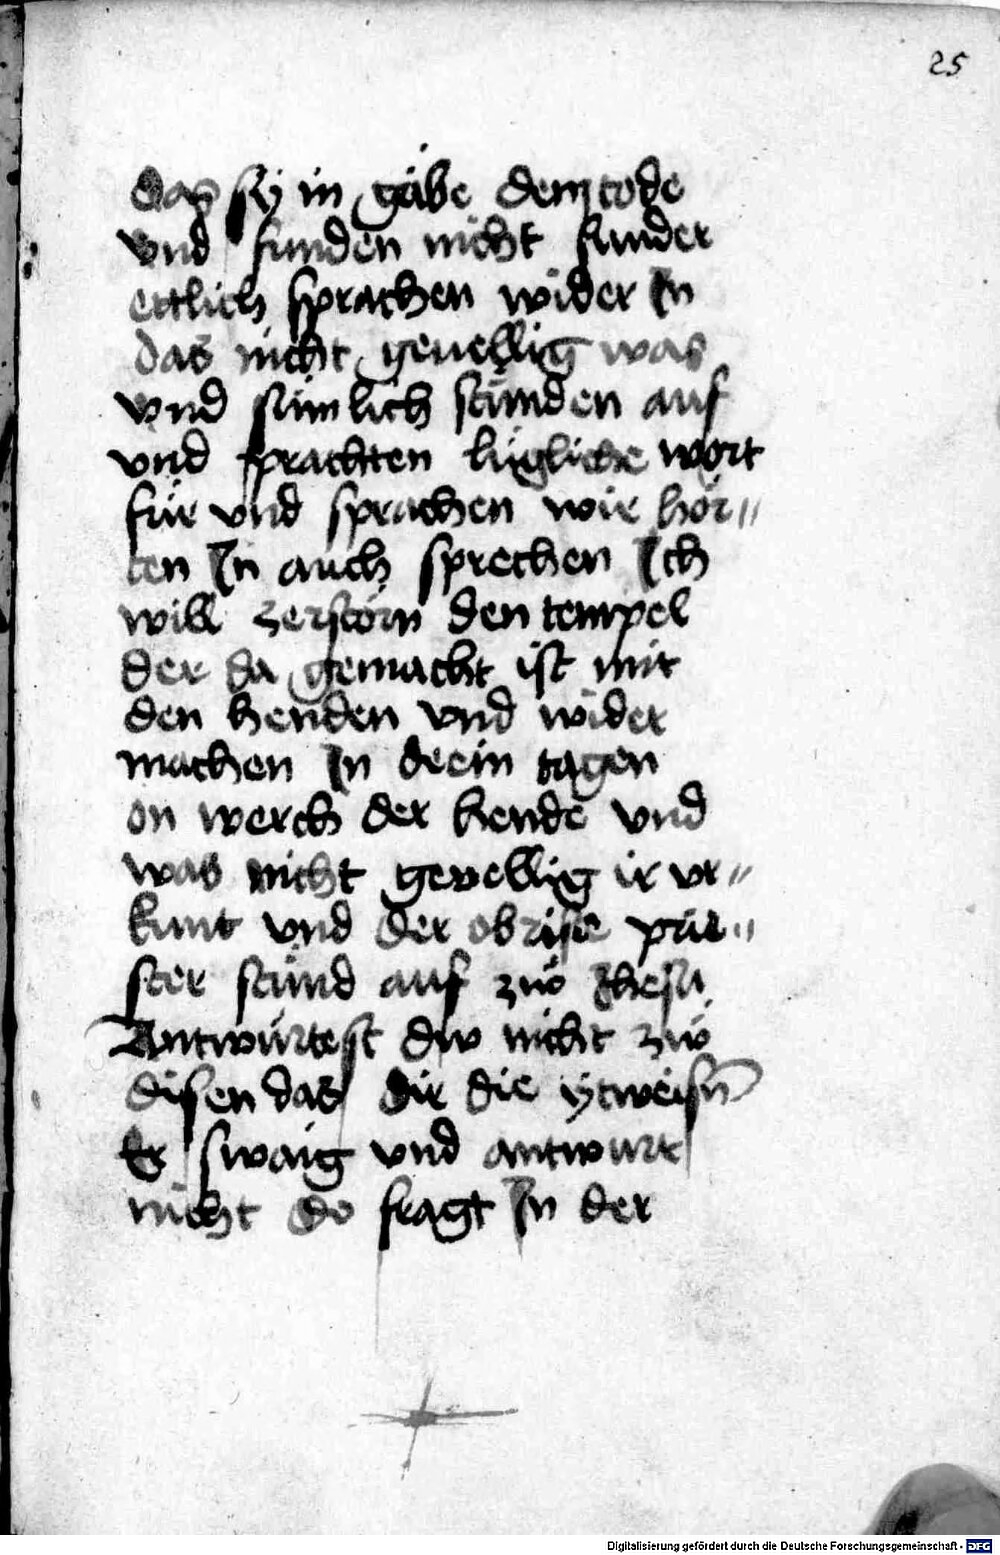 25
das sy in gäbe dem tode
vnd funden nicht sunder
ettlich sprachen wider In
das nicht geuellig was
vnd sümlich stünden auf
vnd prachten lügliche wort
für vnd sprachen wir hör//
ten In auch sprechen Ich
will zerstörn den tempel
der da gemacht ist mit
den henden vnd wider
machen In drein tagen
on werch der hende vnd
was nicht geuellig ir vr//
kunt vnd der obrist prie//
ster stünd auf zuo Jhesu
Antwürtest dw nicht zuo
disen das dir die ytweisn
Er swaig vnd antwurt
nicht do fragt In der
Digitalisierung gefördert durch die Deutsche Forschungsgemeinschaft - DFG